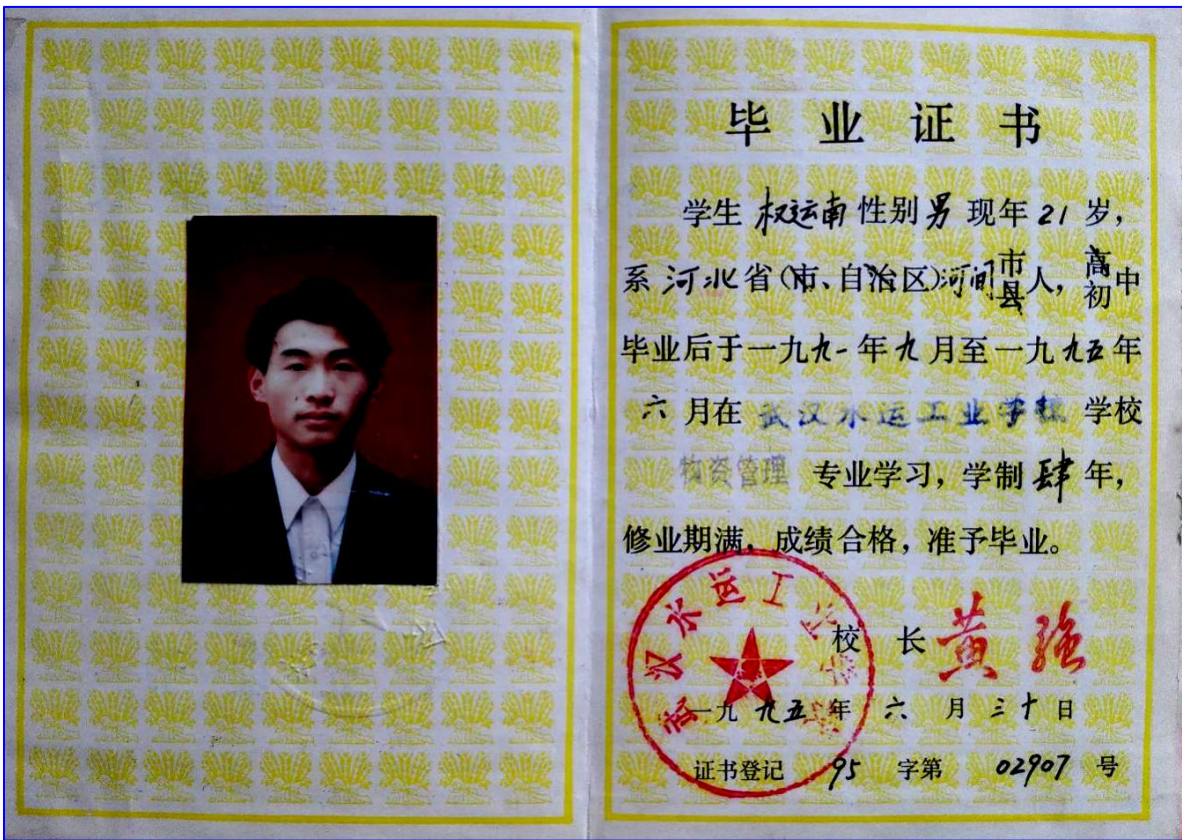 毕业证书
学生 权运南 性别 男 现年 21 岁，
系 河北 省（市、自治区）河间 市县人，高初中
毕业后于一九九一年九月至一九九五年
六月在 武汉水运工业学校 学校
物资管理 专业学习，学制肆年，
修业期满，成绩合格，准予毕业。
武汉水运工业学校
校长 黄强
一九九五年六月三十日
证书登记 95 字第 02907 号